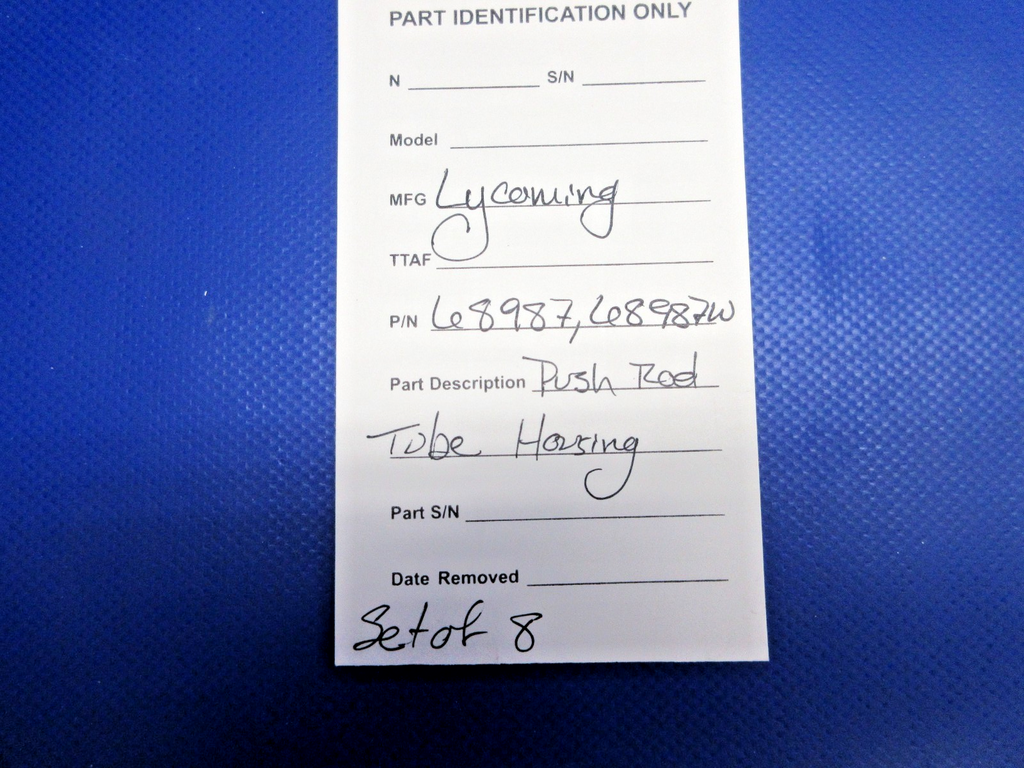 PART IDENTIFICATION ONLY
N S/N
Model
MFG Lycoming
TTAF
P/N 68987, 68987W
Part Description Push Rod
Tube Housing
Part S/N
Date Removed
Set of 8